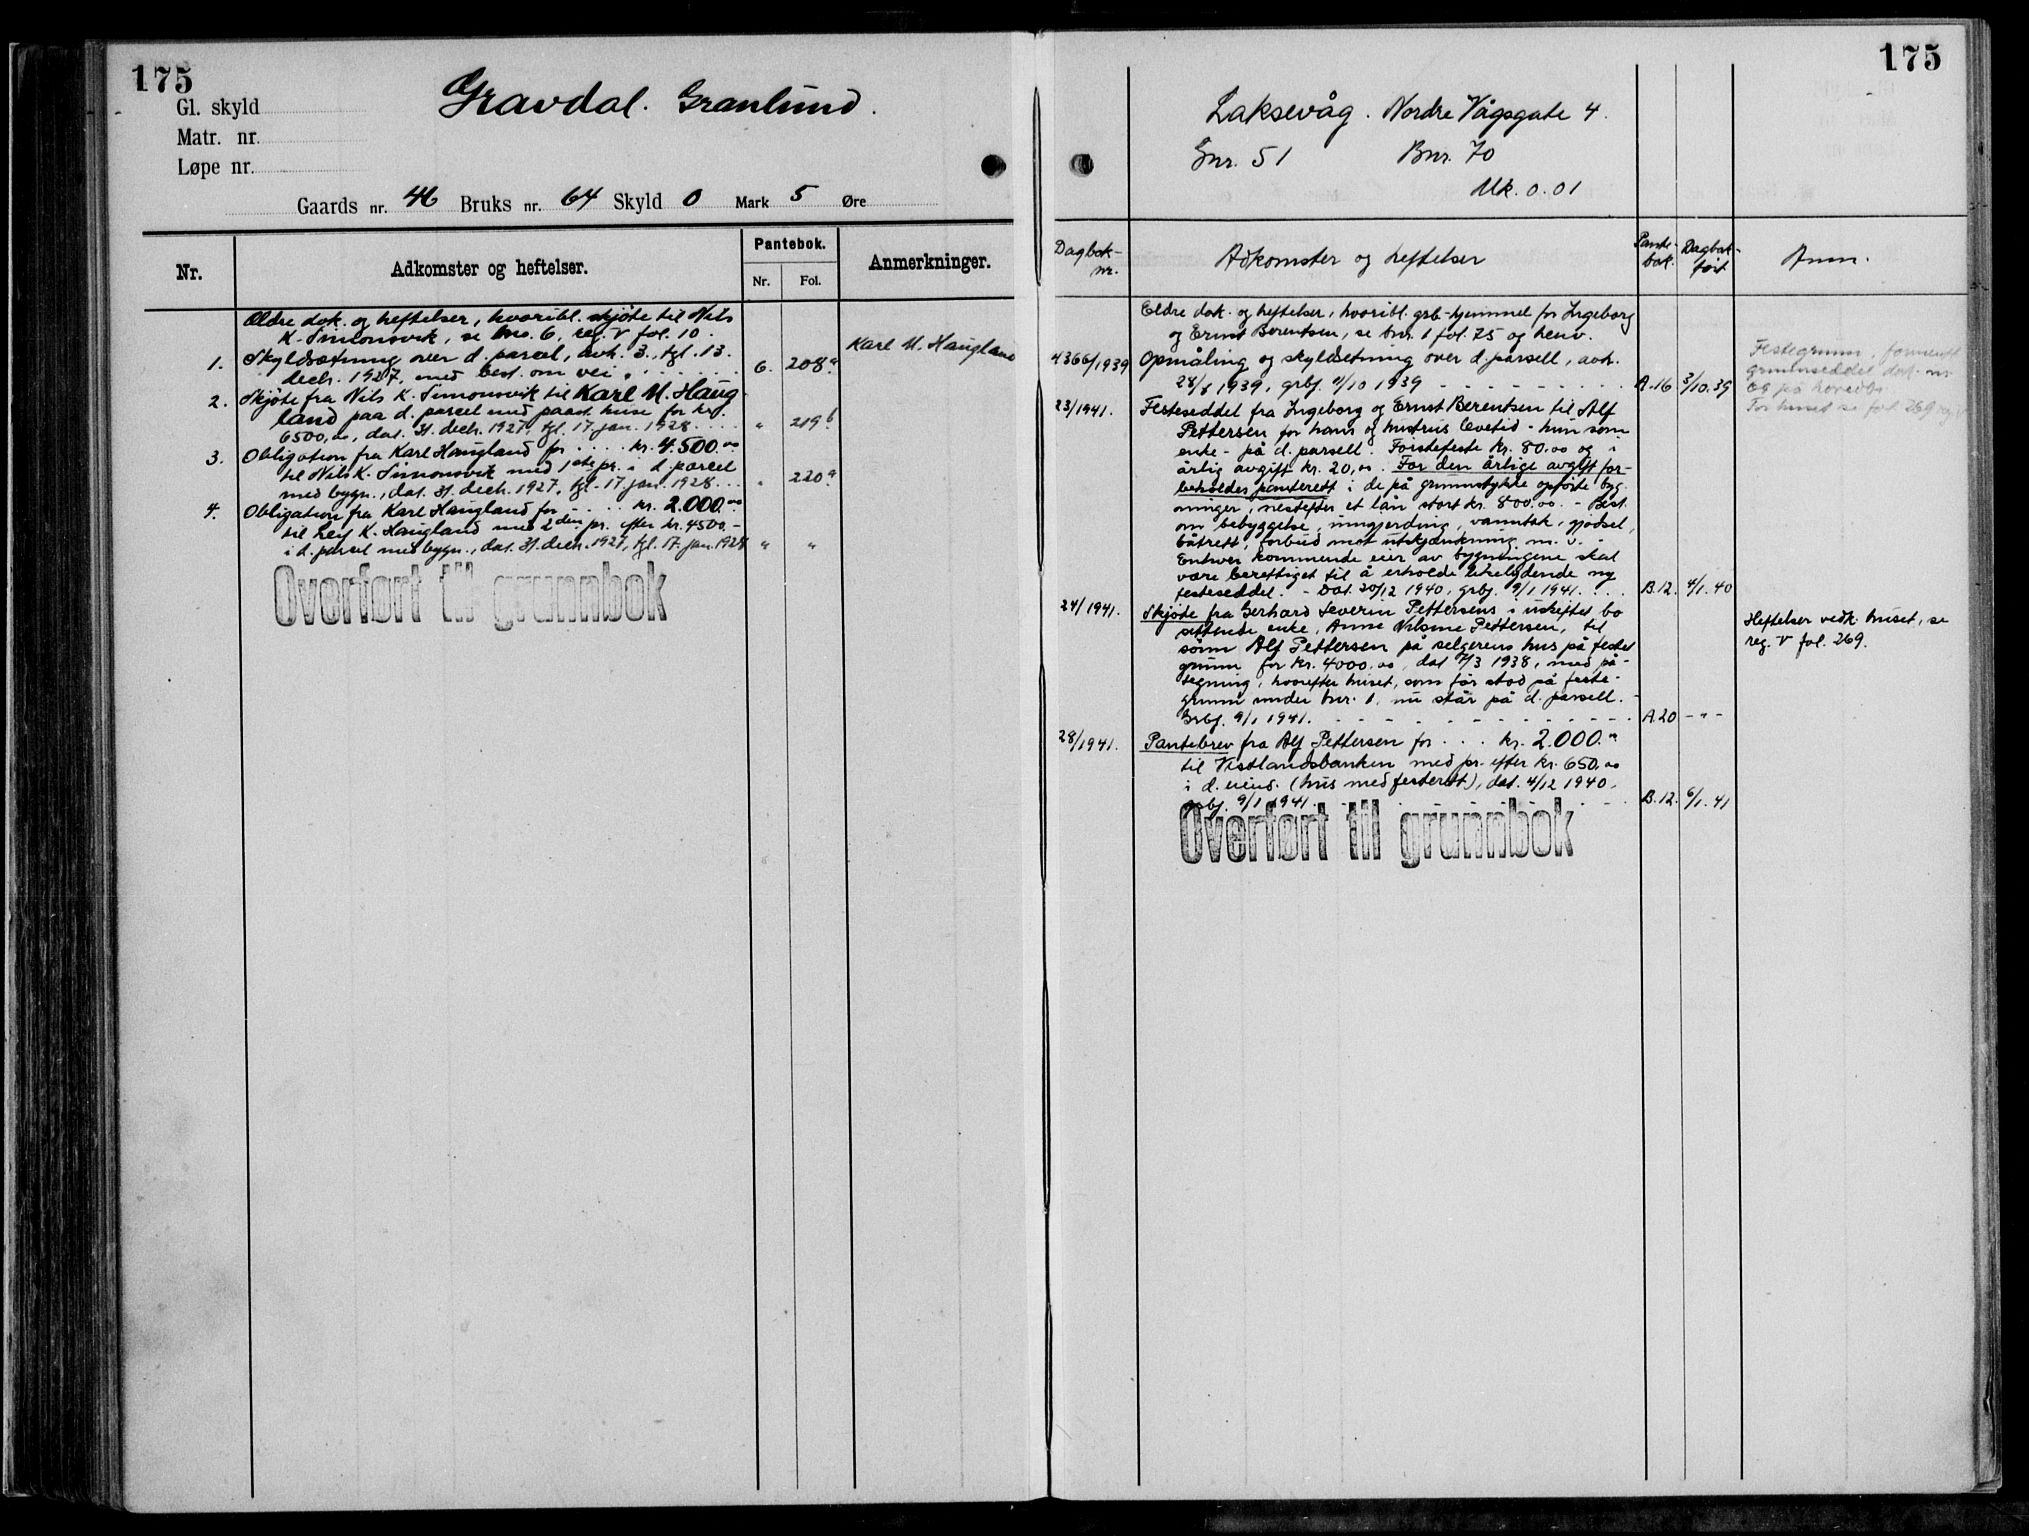 175
Gl. skyld
Matr. nr.
Løpe nr.
Gravdal. Granlund.
Gaards nr. 46 Bruks nr. 64 Skyld 0 Mark 5 Øre
Nr.
Adkomster og heftelser.
Pantebok.
Nr. Fol.
Anmerkninger.
Ældre dok. og heftelser, hvoribl. skjøte til Nils
K. Simonsvik, se bno. 6, reg. V fol. 10.
1. Skyldsætning over d. parcel, avh. 3., tgl. 13.
decbr. 1927, med best. om vei. 6. 208a
Karl M. Haugland
2. Skjøte fra Nils K. Simonsvik til Karl M. Haug
land paa d. parcel med paast. huse for kr.
6500,00, dat. 31. decbr. 1927, tgl. 17. jan. 1928 . . . . " 219b
3. Obligation fra Karl Haugland for . . . . kr. 4.500.00
til Nils K. Simonsvik med 1ste pr. i d. parcel
med bygn., dat. 31. decbr. 1927, tgl. 17. jan. 1928 . . . " 220a
4. Obligation fra Karl Haugland for . . . . kr. 2.000.00
til Leif K. Haugland med 2den pr. efter kr. 4500.-
i d. parcel med bygn., dat. 31. decbr. 1927, tgl. 17. jan. 1928 " "
Overført til grunnbok
175
Laksevåg. Nordre Vågsgate 4.
Gnr. 51 Bnr. 70
Mk. 0.01
Dagbok-
nr.
Adkomster og heftelser
Pante-
bok.
Dagbok-
ført
Anm.
Eldre dok. og heftelser, hvoribl. grb-hjemmel for Ingeborg
og Ernst Berentsen, se bnr. 1 fol. 75 og henv.
4366/1939 Opmåling og skyldsetning over d. parsell, avh.
28/8 1939, grbf. 4/10 1939 A.16 3/10.39
Festegrunn,
grunnseddel dok.
og på
For huset se fol. 269
23/1941. Festeseddel fra Ingeborg og Ernst Berentsen til Alf
Pettersen for hans og hustrus levetid - hun som
enke - på d. parsell. Førstefeste kr. 80.00 og i
årlig avgift kr. 20,00. For den årlige avgift for-
beholdes panterett i de på grunnstykke opførte byg-
ninger, nestefter et lån stort kr. 800.00. - Best.
om bebyggelse, inngjerding, vanntak, gjødsel,
båtrett, forbud mot utskjenkning m.v. -
Enhver kommende eier av bygningene skal
være berettiget til å erholde likelydende ny
festeseddel. - Dat. 20/12 1940, grbf. 9/1 1941. . . . B.12. 4/1.40
24/1941. Skjøte fra Gerhard Severin Pettersens i uskiftet bo
sittende enke, Anne Nilsine Pettersen, til
sønn Alf Pettersen på selgerens hus på festet
grunn for kr. 4000.00, dat. 7/3 1938, med på-
tegning, hvorefter huset, som før stod på feste-
grunn under bnr. 1, nu står på d. parsell. -
Grbf. 9/1 1941. A.20 - " -
Heftelser vedk. huset, se
reg. V fol. 269.
28/1941. Pantebrev fra Alf Pettersen for . . . kr. 2.000.00
til Vestlandsbanken med pr. efter kr. 650.00
i d. eiend. (hus med festerett), dat. 4/12 1940,
grbf. 9/1 1941. B.12. 6/1.41
Overført til grunnbok